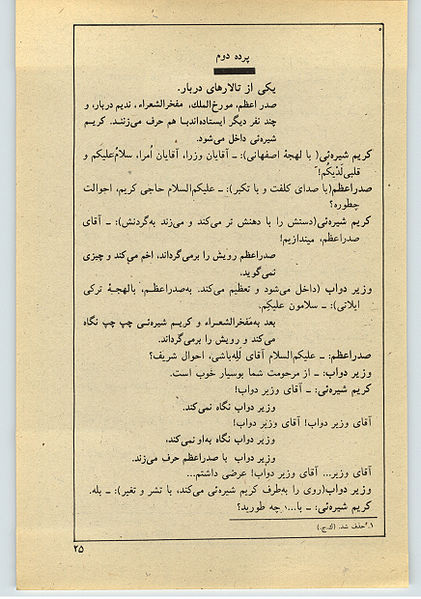 پرده دوم
یکی از تالارهای دربار.
صدراعظم، مورخ‌الملك، مفخرالشعراء، ندیم دربار، و
چند نفر دیگر ایستاده‌اند با هم حرف می‌زنند. کریم
شیره‌ئی داخل می‌شود.
کریم شیره‌ئی( با لهجهٔ اصفهانی): ـ آقایان وزرا، آقایان اُمرا، سلامُ‌علیکم و
قلبی‌لَدَیکُم!
صدراعظم(با صدای کلفت و با تکبر): ـ علیکم‌السلام حاجی کریم، اجوالت
چطوره؟
کریم شیره‌ئی(دستش را با دهنش تر می‌کند و می‌زند به‌گردنش): ـ آقای
صدراعظم، میندازیم!
صدراعظم رویش را برمی‌گرداند، اخم می‌کند و چیزی
نمی‌گوید.
وزیر دواب (داخل می‌شود و تعظیم می‌کند. به‌صدراعظم، بالهجهٔ ترکی
ایلاتی): ـ سلامون علیکم.
بعد به‌مفخرالشعراء و کریم شیره‌ئی چپ چپ نگاه
می‌کند و رویش را برمی‌گرداند.
صدراعظم: ـ علیکم‌السلام آقای لَلِه‌باشی، احوال شریف؟
وزیر دواب: ـ از مرحومت شما بوسیار خوب است.
کریم شیره‌ئی: ـ آقای وزیر دواب!
وزیر دواب نگاه نمی‌کند.
آقای وزیر دواب! آقای وزیر دواب!
وزیر دواب نگاه به‌او نمی‌کند،
وزیر دواب با صدراعظم حرف می‌زند.
آقای وزیر... آقای وزیر دواب! عرضی داشتم...
وزیر دواب(روی را به‌طرف کریم شیره‌ئی می‌کند، با تشر و تغیر): ـ بله.
کریم شیره‌ئی: ـ با...۱ چه طورید؟
۱. حذف شد. (ك.ج.)
۲۵